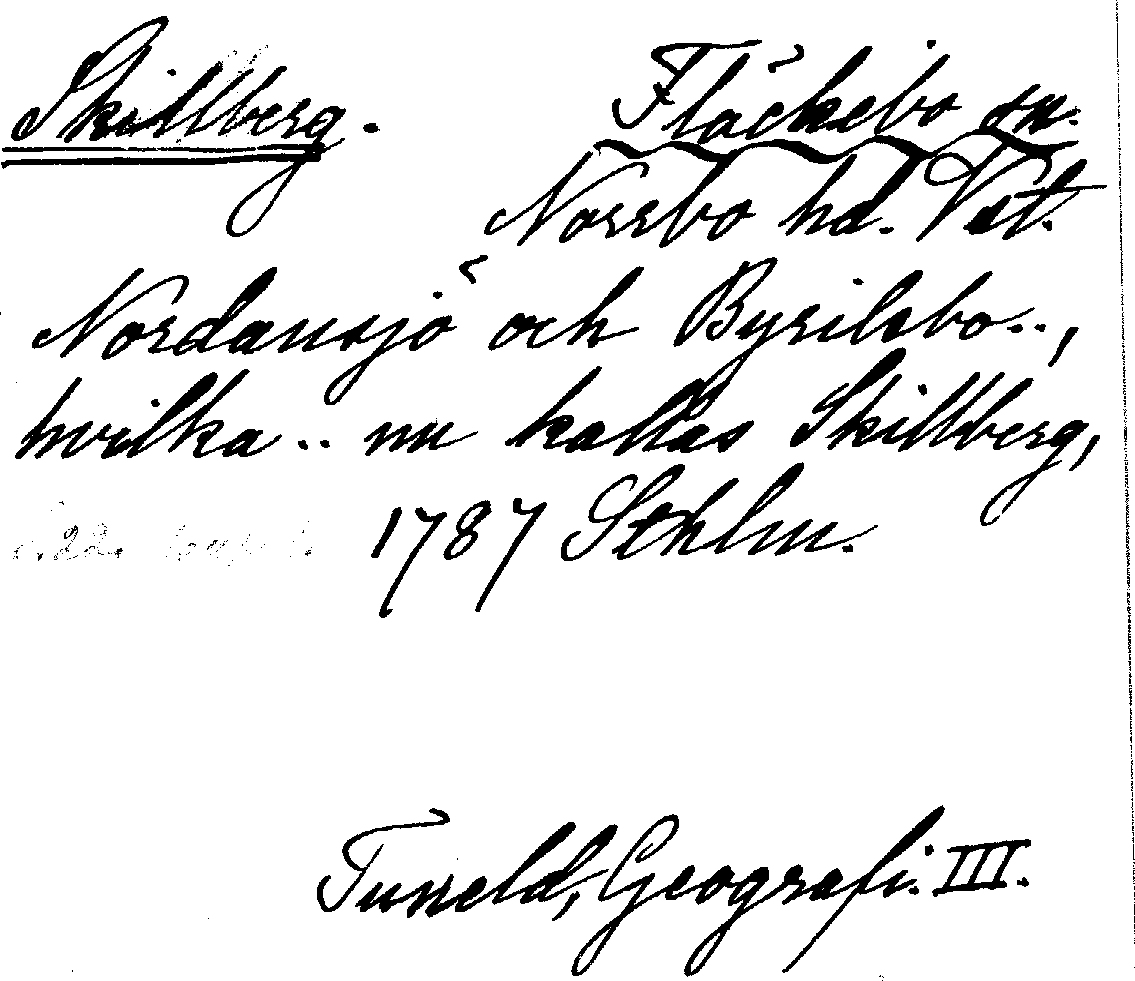 Skillberg. Fläckebo sn.
Norrbo hd. Vst.
Nordansjö och Byrilsbo..,
hvilka .. nu kallas Skillberg,
1787 Sthlm.
Tuneld, Geografi. III.